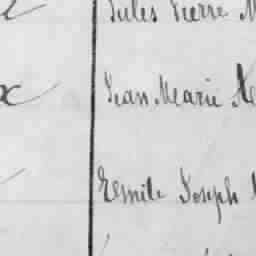 Jules Pierre
Jean Marie
Emile Joseph